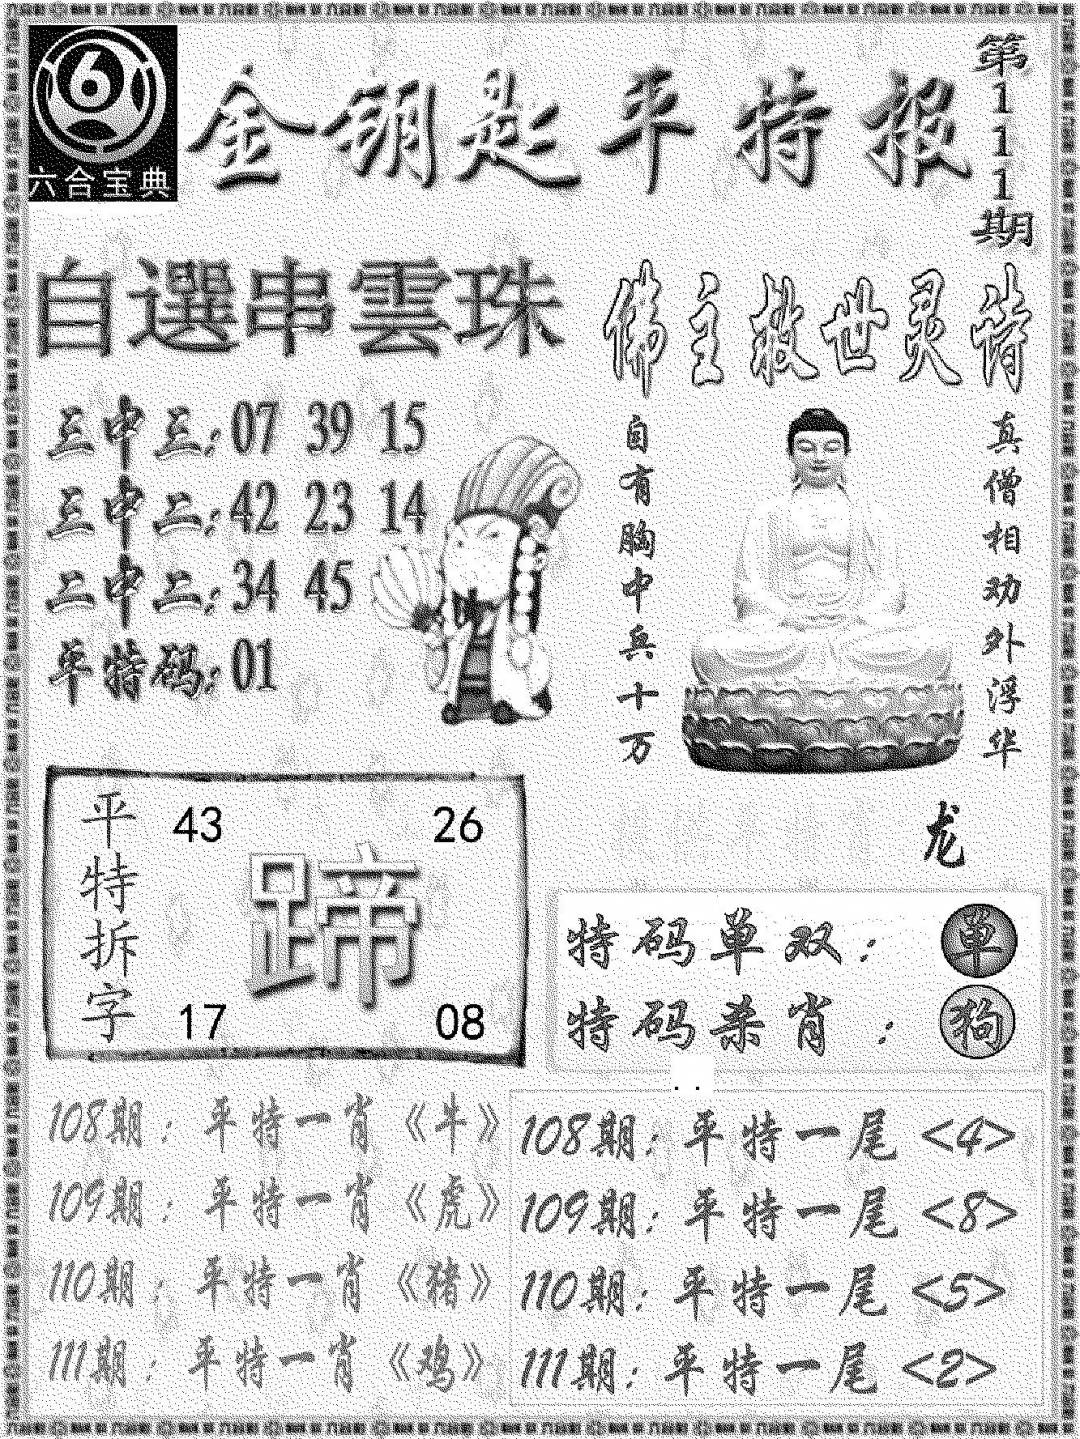 六合宝典
金钥匙平特报
第111期
自選串雲珠
三中三:07 39 15
三中二:42 23 14
二中二:34 45
平特码:01
佛主救世灵诗
真僧相劝外浮华
自有胸中兵十万
龙
平特拆字
43 26
蹄
17 08
特码单双: 单
特码杀肖: 狗
..
108期: 平特一肖《牛》
109期: 平特一肖《虎》
110期: 平特一肖《猪》
111期: 平特一肖《鸡》
108期: 平特一尾 <4>
109期: 平特一尾 <8>
110期: 平特一尾 <5>
111期: 平特一尾 <2>